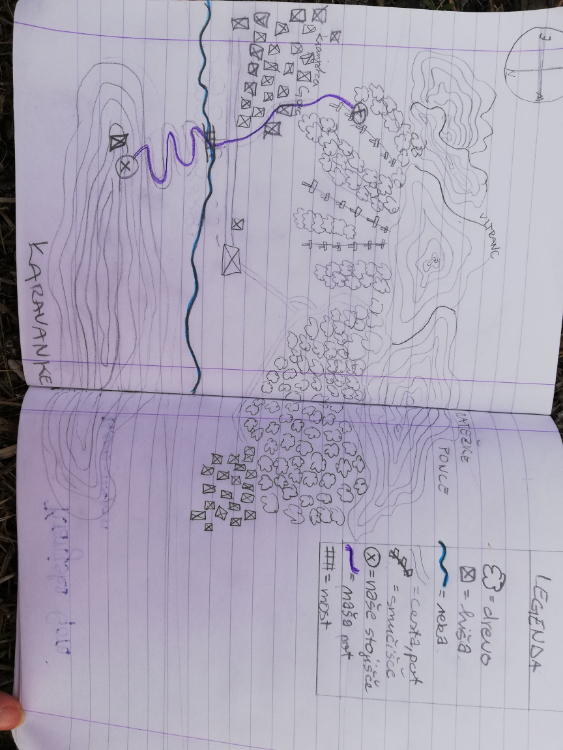 Kranjska
Gora
VITRANC
PONCE
KARAVANKE
LEGENDA
= drevo
= hiša
= reka
= cesta, pot
= smučišče
= naše stojišče
= naša pot
= most